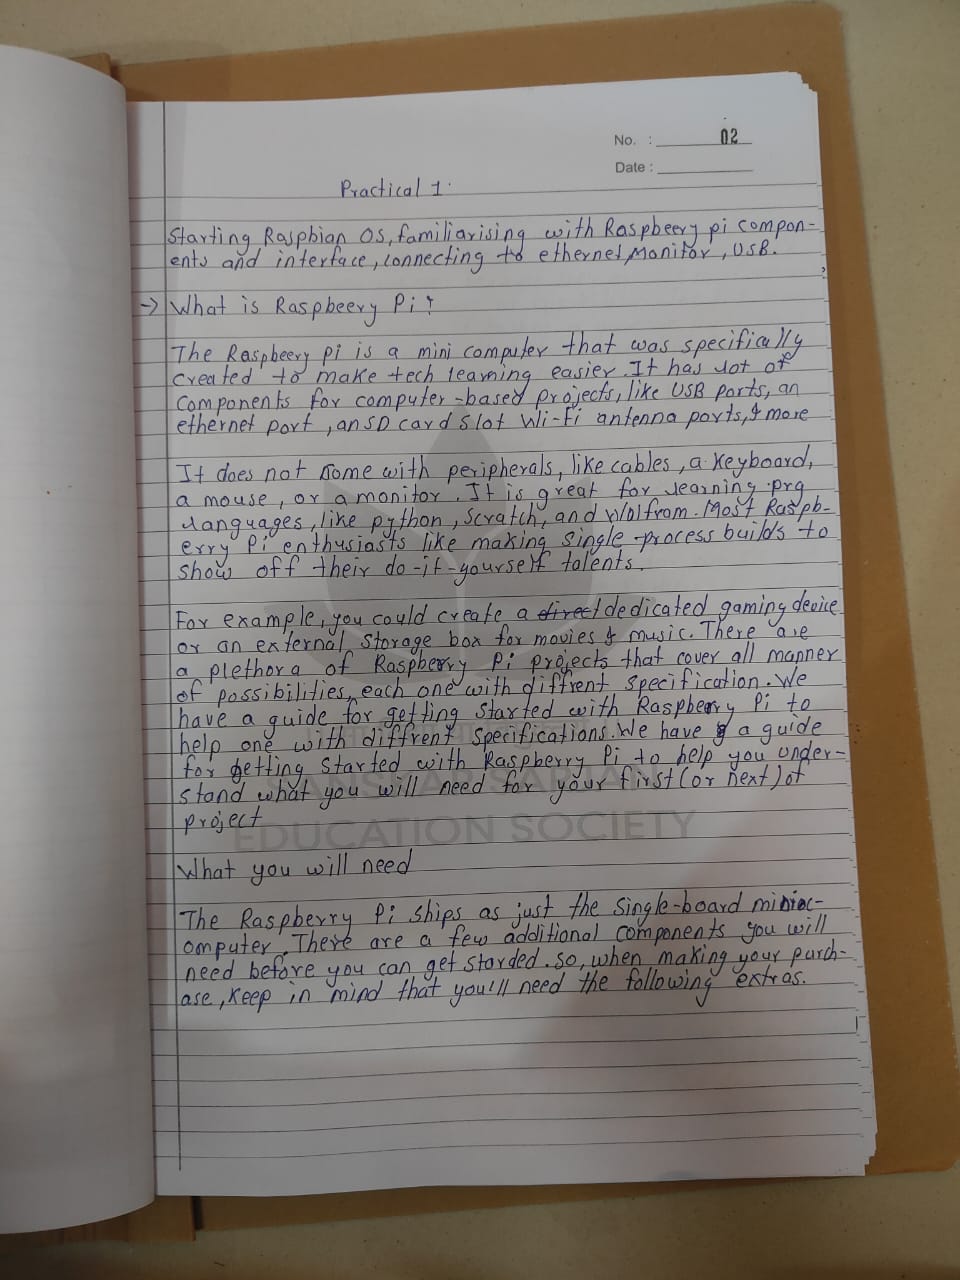 No. : 02
Date :
Practical 1:
Starting Raspbian OS, familiarising with Raspbeery pi compon-
ents and interface, connecting to ethernet, Monitor, USB.
→ What is Raspbeery Pi?
The Raspbeery pi is a mini computer that was specifically
created to make tech learning easier. It has lot of
components for computer-based projects, like USB ports, an
ethernet port, an SD card slot Wi-Fi antenna ports, & more
It does not come with peripherals, like cables, a keyboard,
a mouse, or a monitor. It is great for learning prg
languages, like python, scratch, and Wolfrom. Most Raspb-
erry Pi enthusiasts like making single-process builds to
show off their do-it-yourself talents.
For example, you could create a direct dedicated gaming device
or an external storage box for movies & music. There are
a plethora of Raspberry Pi projects that cover all manner
of possibilities, each one with diffrent specification. We
have a guide for getting started with Raspberry Pi to
help one with diffrent specifications. We have a guide
for getting started with Raspberry Pi to help you under-
stand what you will need for your first (or next) of
project
SANSKAR SARJAN
EDUCATION SOCIETY
What you will need
The Raspberry Pi ships as just the single-board minioc-
omputer. There are a few additional components you will
need before you can get starded. so, when making your purch-
ase, keep in mind that you'll need the following extras.